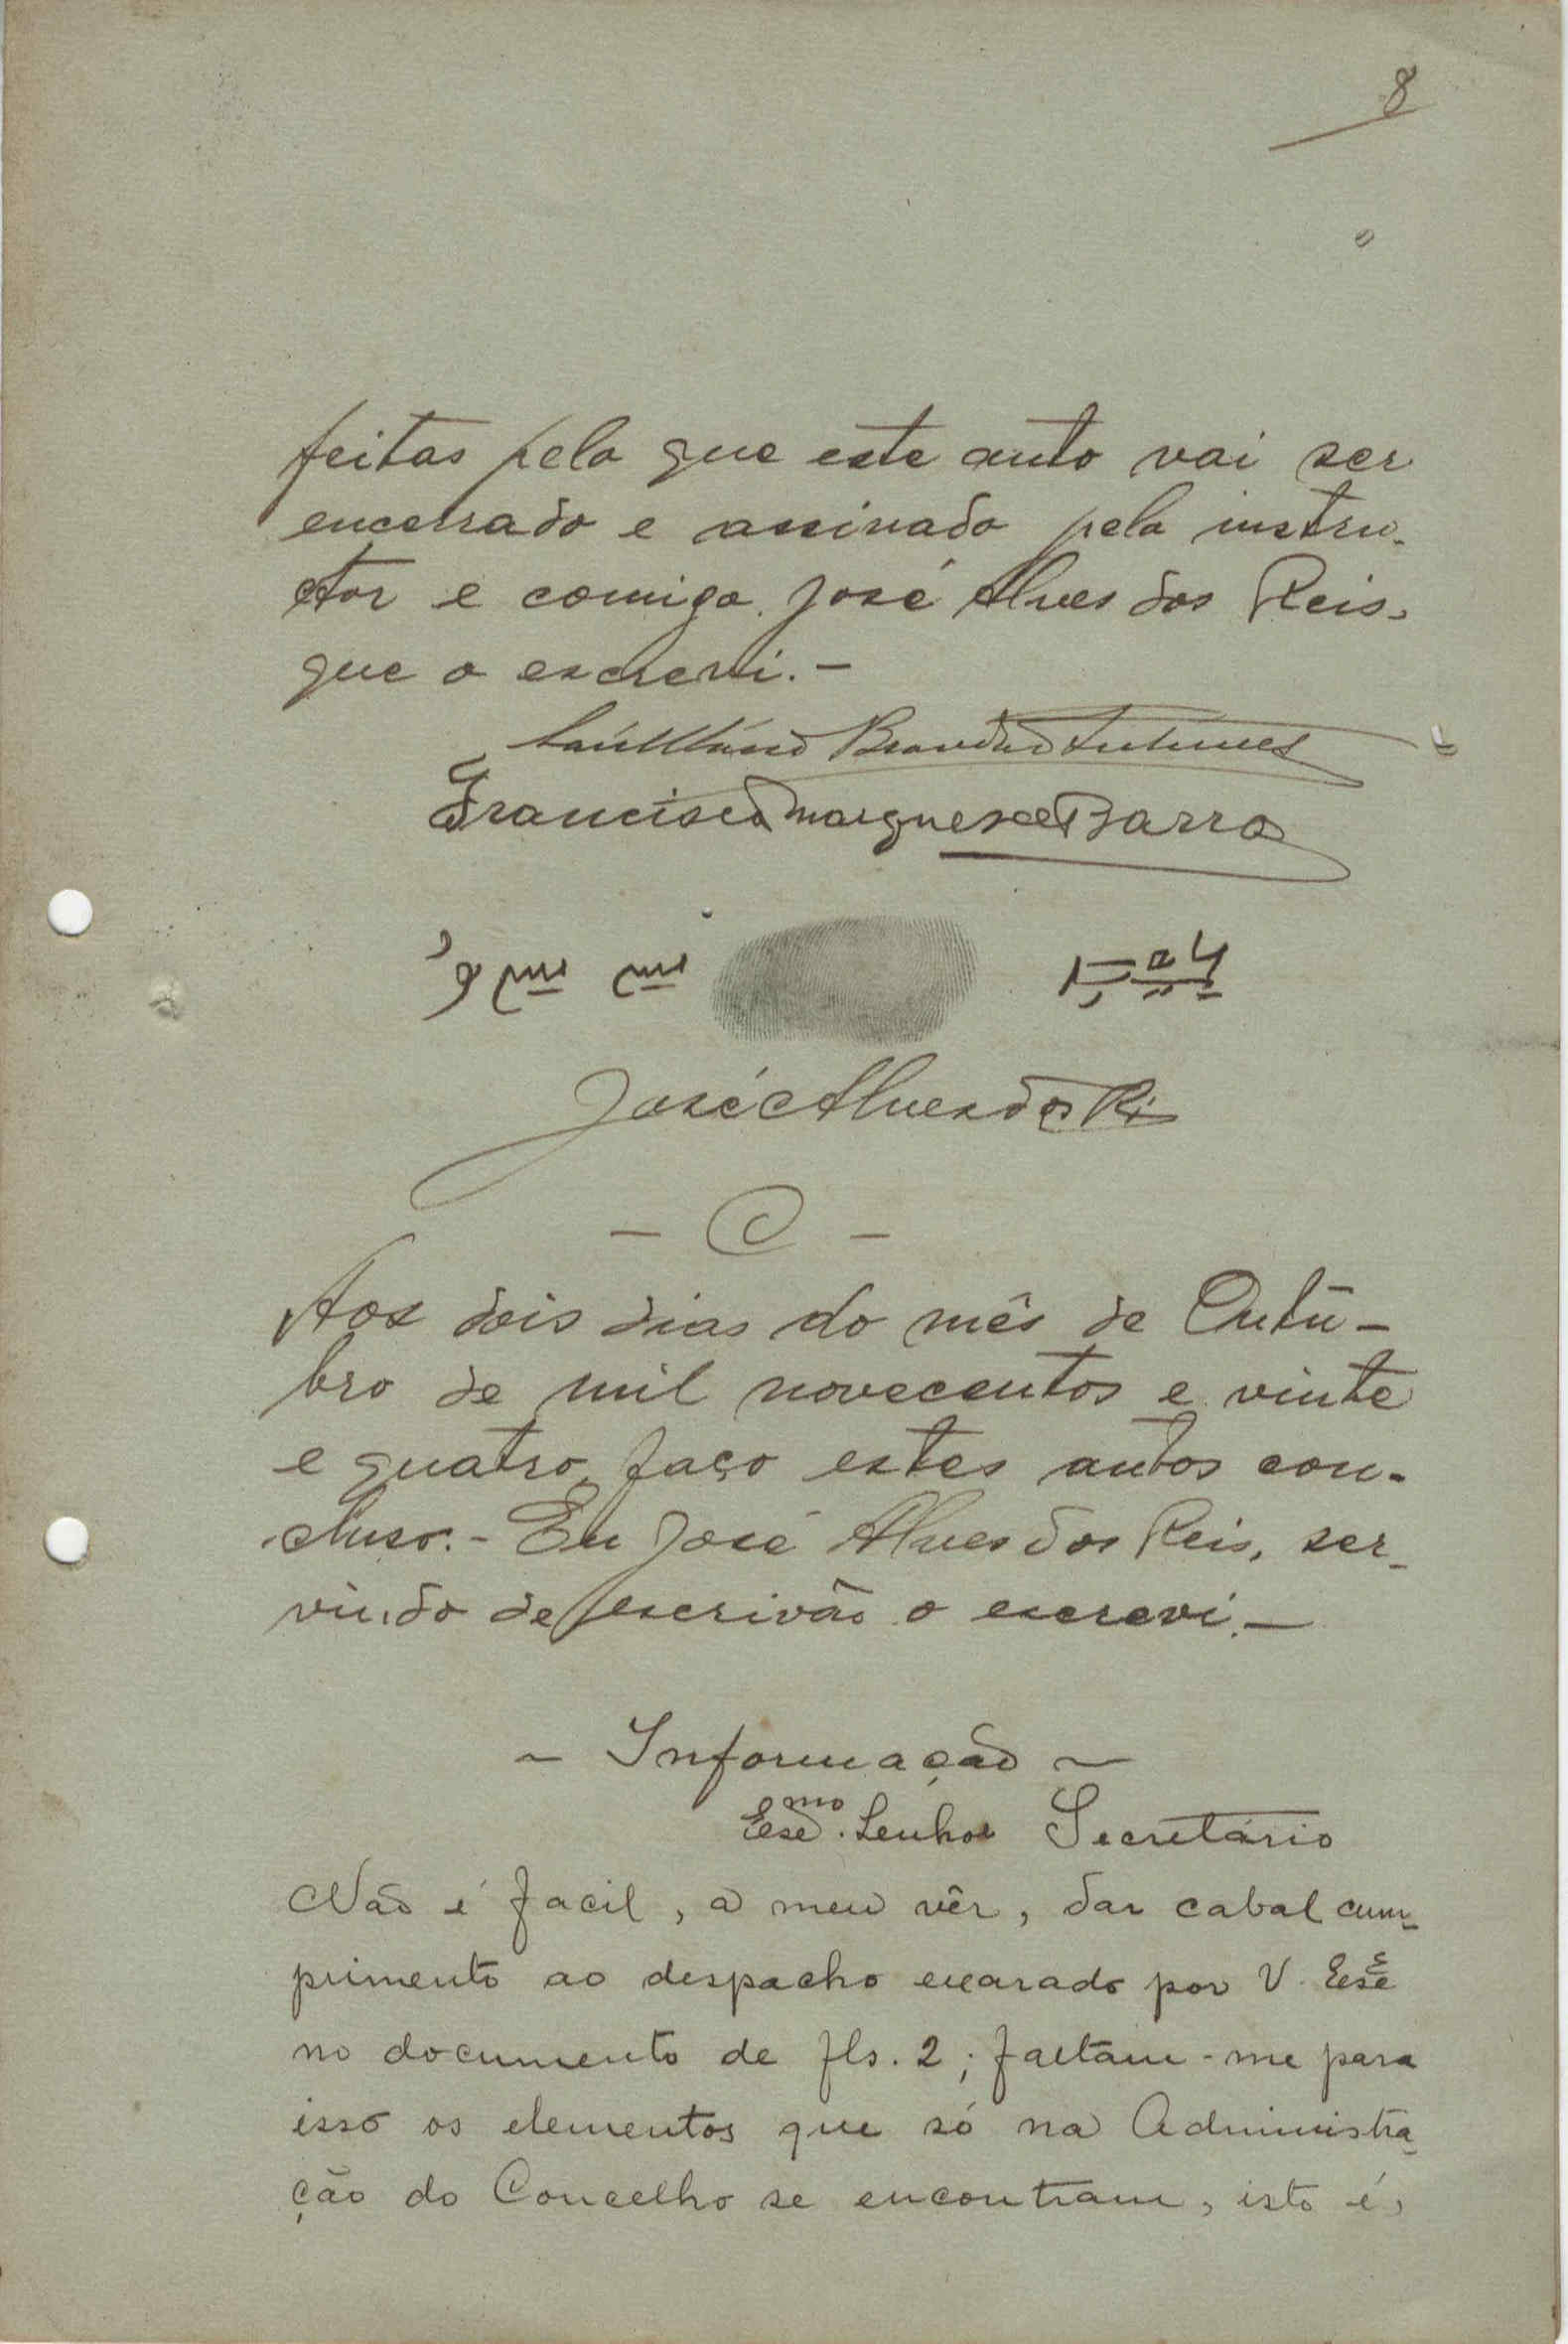 8
feitas pelo que este auto vai ser
encerrado e assinado pelo instru-
ctor e comigo José Alves dos Reis,
que o escrevi. -
Brandão Antunes
Francisco Marques de Barros
José Alves dos Reis
- C -
Aos dois dias do mês de Outu-
bro de mil novecentos e vinte
e quatro, faço estes autos con-
cluso. - Eu José Alves dos Reis, ser-
vindo de escrivão o escrevi. -
~ Informação ~
Exmo. Senhor Secretário
Não é facil, a meu vêr, dar cabal cum-
primento ao despacho exarado por V. Exª
no documento de fls. 2; faltam-me para
isso os elementos que só na Administra-
ção do Concelho se encontram, isto é,